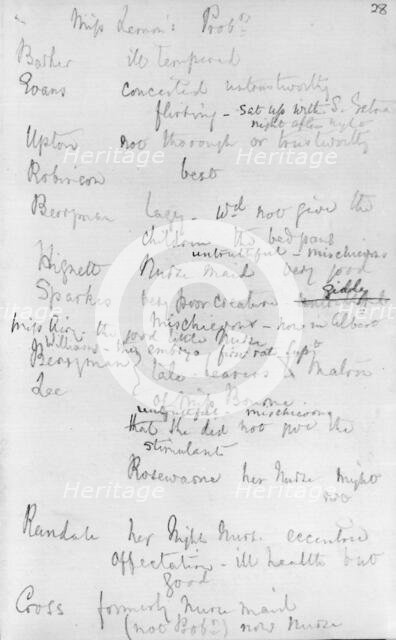 28
Miss Lennon's Probrs
Barker ill tempered
Evans conceited untrustworthy
flirting - sat up with S.
night after night
Upton not thorough or trustworthy
Robinson best
Berryman lazy - wd not give the
children the bed pans
untruthful - mischievous
Hignett Nurse maid very good
Sparkes very poor creature giddy
mischievous - now in Albert
Miss - the good little Nurse
Williams first rate
Berryman } tale-bearers to Matron
Lee } of Miss Bourne
untruthful mischievous
that she did not give the
stimulants
Rosewarne her Nurse might
Randale her Night Nurse eccentric
affectation - ill health but
good
Cross formerly Nurse maid
(not Probr) now Nurse
Heritage
Heritage
Heritage
Heritage
Heritage
Heritage
Heritage
Heritage